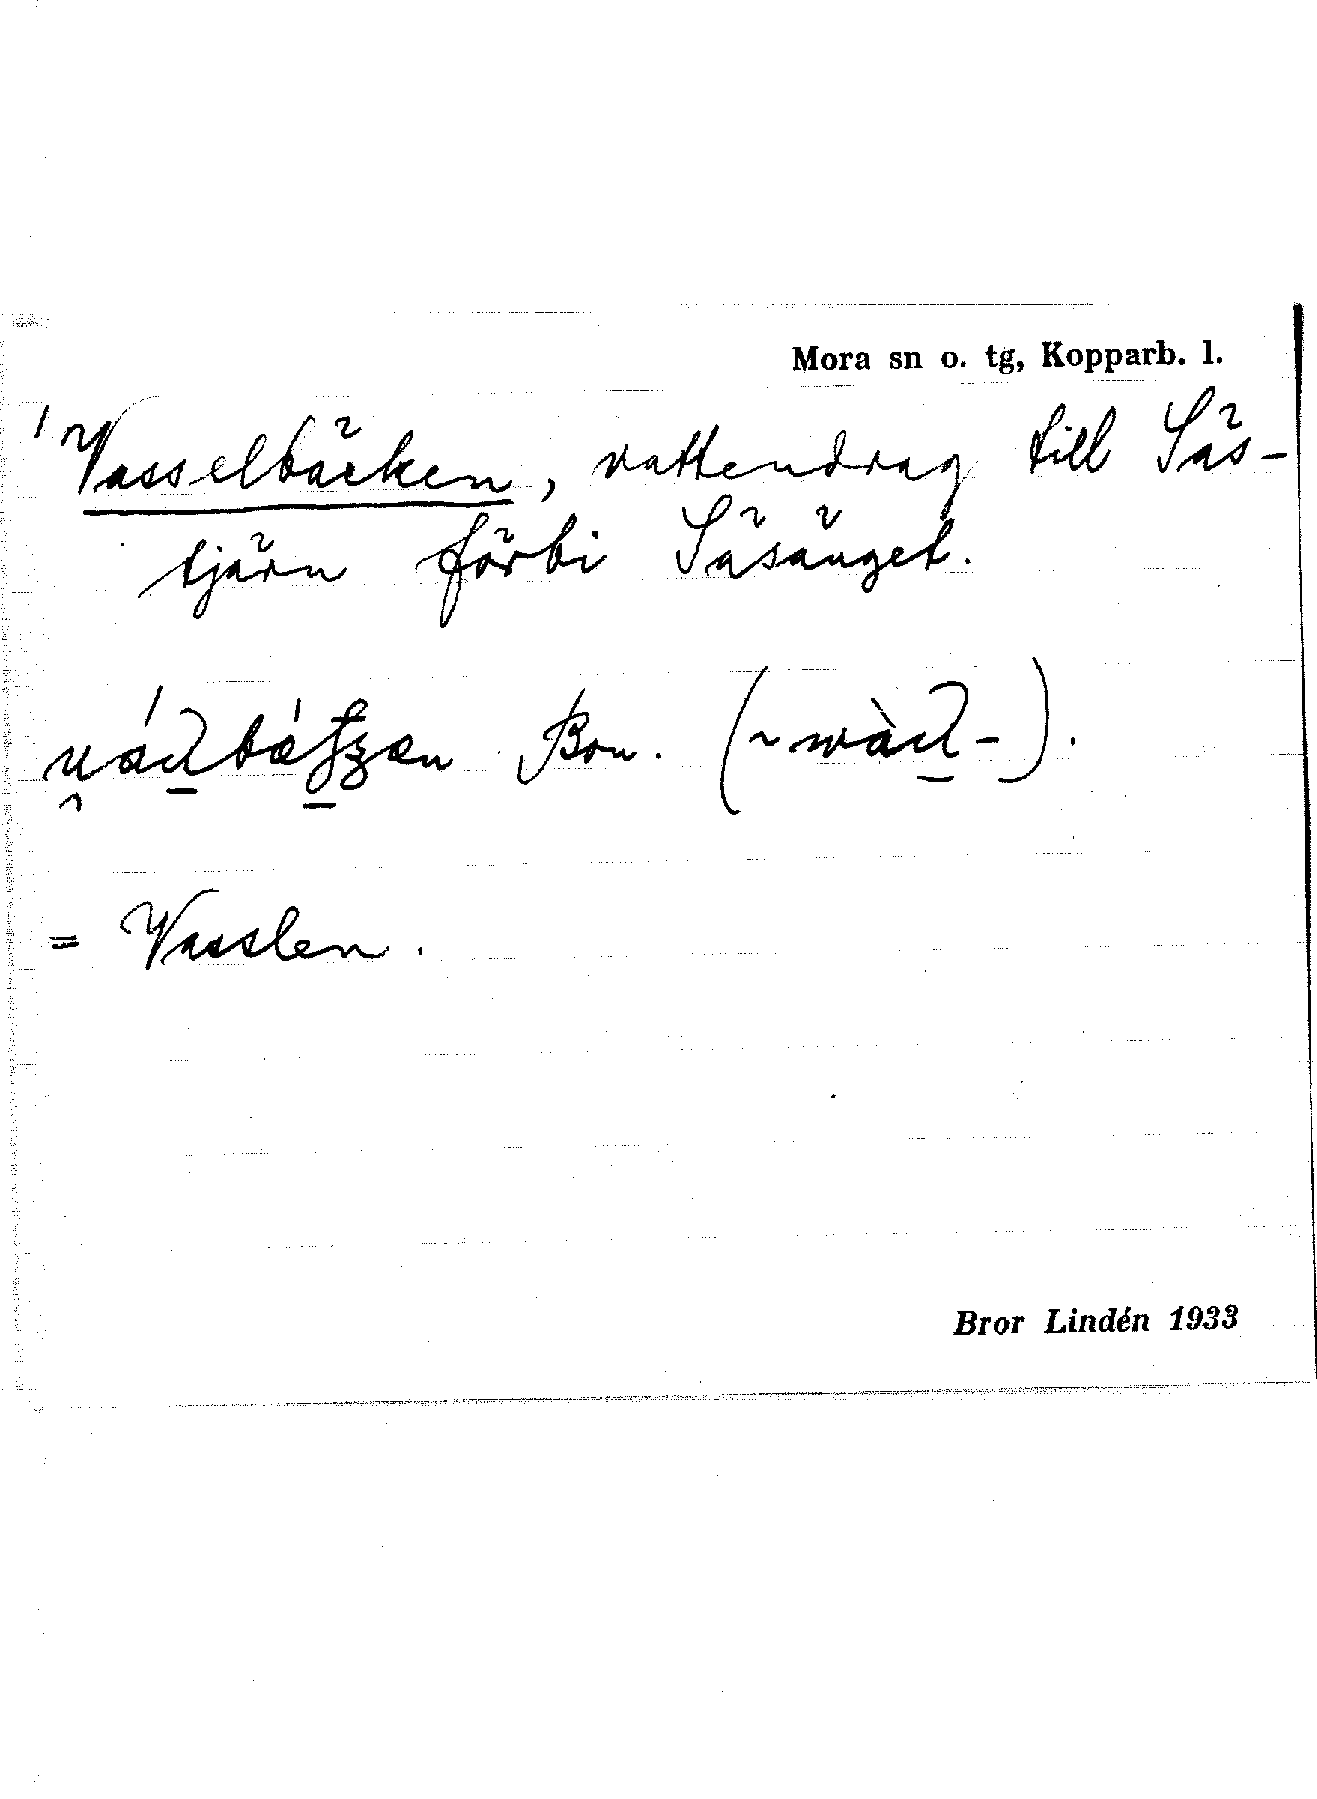 Mora sn o. tg, Kopparb. l.
Vasselbäcken, vattendrag till Säs-
tjärn förbi Säsänget.
Bon.
= Vasslen.
Bror Lindén 1933